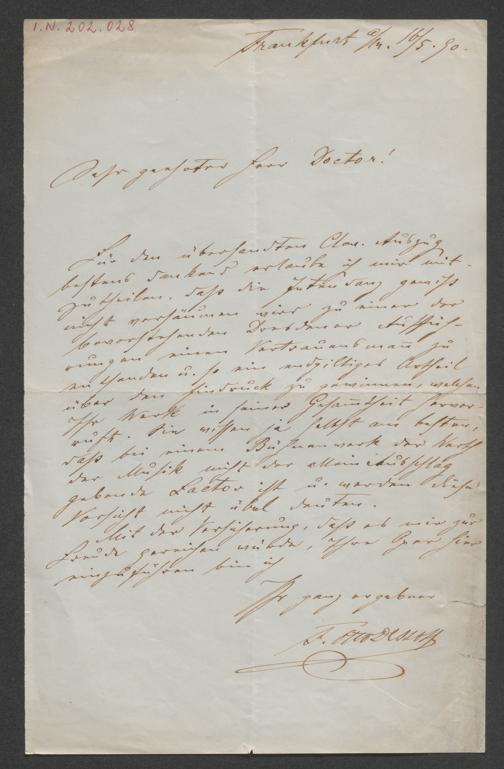 I.N. 202.028
Frankfurt a/M. 16/5.90.
Sehr geehrter Herr Doctor!
Für den übersandten Clav. Auszug
bestens dankend erlaube ich mir mit-
zutheilen, daß die Intendanz gewiß
nicht versäumen wird zu einer der
bevorstehenden Dresdener Auffüh-
rungen einen Vertrauensmann zu
entsenden u. so ein endgiltiges Urtheil
über den Eindruck zu gewinnen, welchen
Ihr Werk in seiner Gesammtheit hervor-
ruft. Sie wissen ja selbst am besten,
daß bei einem Bühnenwerk der Werth
der Musik nicht der allein Ausschlag
gebende Factor ist u. werden diese
Vorsicht nicht übel deuten.
Mit der Versicherung, daß es mir zur
Freude gereichen würde, Ihre Oper hier
einzuführen bin ich
Ihr ganz ergebner
F. Otto Dessoff